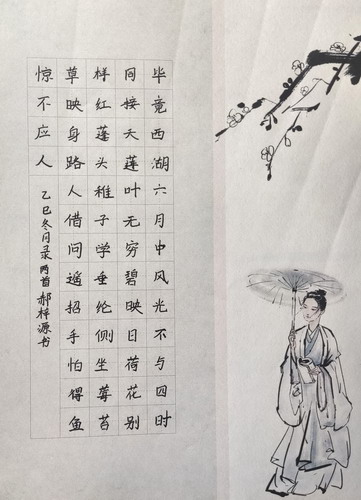 毕竟西湖六月中风光不与四时
同接天莲叶无穷碧映日荷花别
样红蓬头稚子学垂纶侧坐莓苔
草映身路人借问遥招手怕得鱼
惊不应人
乙巳冬月录两首郝梓源书